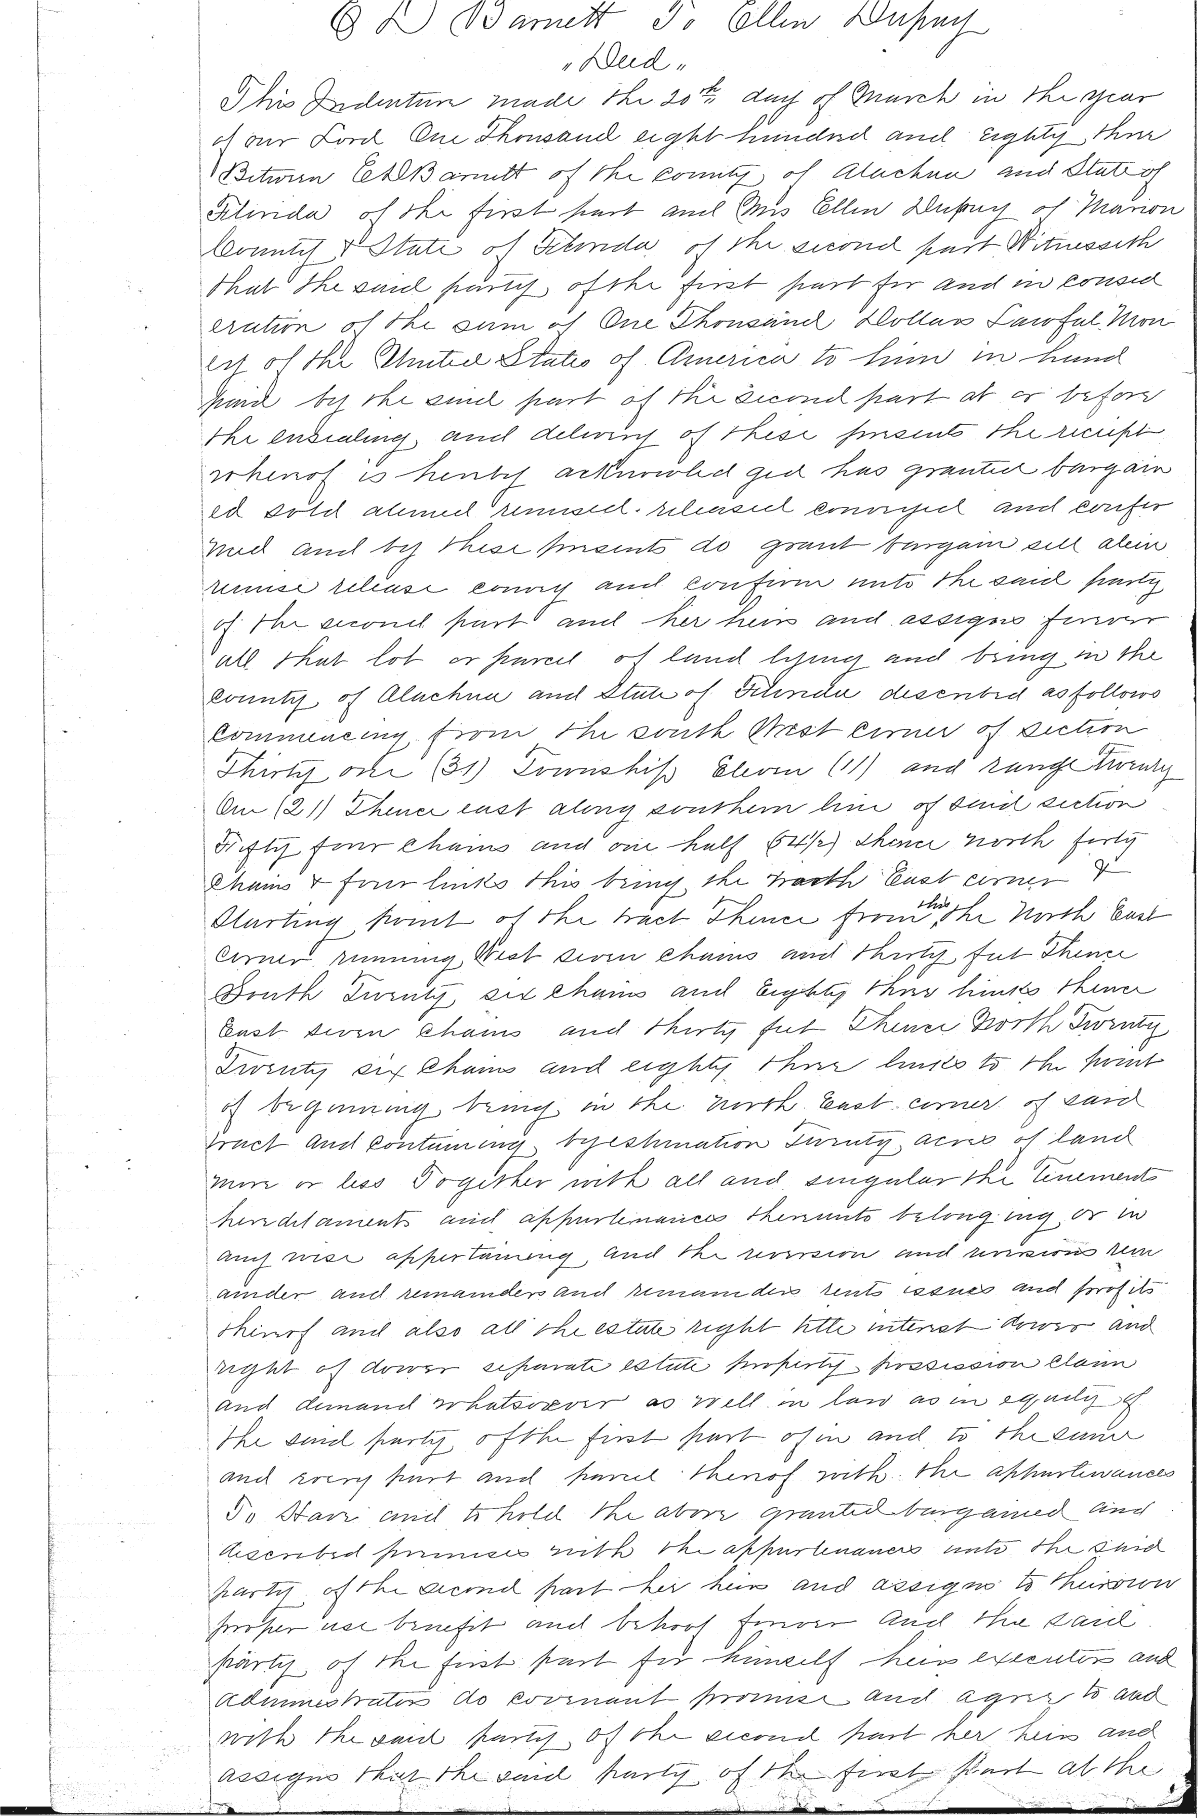 E D Barnett To Ellen Dupuy
"Deed"
This Indenture made the 20th day of March in the year
of our Lord One Thousand eight hundred and Eighty three
Between E D Barnett of the county of Alachua and State of
Florida of the first part and Mrs Ellen Dupuy of Marion
County & State of Florida of the second part Witnesseth
that the said party of the first part for and in consid
eration of the sum of One Thousand Dollars Lawful Mon
ey of the United States of America to him in hand
paid by the said part of the second part at or before
the ensealing and delivery of these presents the receipt
whereof is hereby acknowled ged has granted bargain
ed sold aliened remised released conveyed and confir
med and by these presents do grant bargain sell alein
remise release convey and confirm unto the said party
of the second part and her heirs and assigns forever
all that lot or parcel of land lying and being in the
county of Alachua and State of Florida described as follows
Commencing from the south West corner of section
Thirty one (31) Township Eleven (11) and range Twenty
One (21) Thence east along southern line of said section
Fifty four chains and one half (54½) thence north forty
Chains & four links this being the North East corner &
Starting point of the tract Thence from this the North East
Corner running West seven chains and thirty feet Thence
South Twenty six chains and Eighty three links thence
East seven chains and thirty feet Thence North Twenty
Twenty six Chains and eighty three links to the point
of beginning being in the north East corner of said
tract and containing by estimation Twenty acres of land
more or less Together with all and singular the tenements
hereditaments and appurtenances thereunto belonging or in
any wise appertaining and the reversion and reversions rem
ainder and remainders and remainders rents issues and profits
thereof and also all the estate right title interest dower and
right of dower separate estate property possession claim
and demand whatsoever as well in law as in equity of
the said party of the first part of in and to the same
and every part and parcel thereof with the appurtenances
To Have and to hold the above granted bargained and
described premises with the appurtenances unto the said
party of the second part her heirs and assigns to their own
proper use benefit and behoof forever And the said
party of the first part for himself heirs executors and
administrators do covenant promise and agree to and
with the said party of the second part her heirs and
assigns that the said party of the first part at the